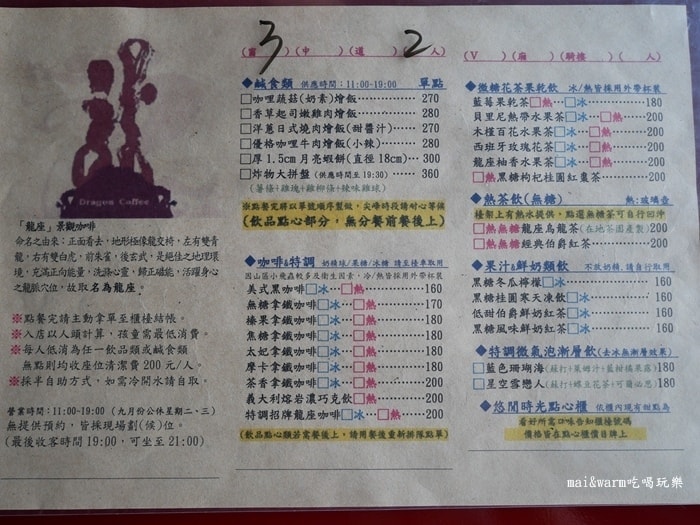 Dragon Coffee
「龍座」景觀咖啡
命名之由來：正面看去，地形極像龍交椅，左右雙青
龍，右有雙白虎，前朱雀，後玄武，是絕佳之地理環
境，充滿正向能量，洗滌心靈，歸正磁能，活躍身心
之龍脈穴位，故取名為龍座。
※點餐完請主動拿單至櫃檯結帳。
※入店以人頭計算，孩童需最低消費。
※每人低消為任一飲品類或鹹食類
無點則均收座位清潔費 200 元/人。
※採半自助方式，如需冷開水請自取。
營業時間：11:00-19:00 (九月份公休星期二、三)
無提供預約，皆採現場劃(候)位。
(最後收客時間 19:00，可坐至 21:00)
(窗 3 )(中 )(道 )( 2 人)
◆鹹食類 供應時間：11:00-19:00 單點
□咖哩蘑菇(奶素)燴飯 270
□香草起司嫩雞肉燴飯 280
□洋蔥日式燒肉燴飯(甜醬汁) 270
□優格咖哩牛肉燴飯(小辣) 280
□厚 1.5cm 月亮蝦餅(直徑 18cm) 300
□炸物大拼盤(供應時間至 19:30) 360
(薯條+雞塊+雞柳條+辣味雞球)
※點餐完將以單號順序製做，尖峰時段請耐心等候
(飲品點心部分，無分餐前餐後上)
◆咖啡&特調 奶精球/果糖/冰糖 請至櫃台取用
因山區小飛蟲較多及衛生因素，冷/熱皆採用外帶杯裝
美式黑咖啡□冰…□熱 160
無糖拿鐵咖啡□冰…□熱 170
榛果拿鐵咖啡□冰…□熱 180
焦糖拿鐵咖啡□冰…□熱 180
太妃拿鐵咖啡□冰…□熱 180
摩卡拿鐵咖啡□冰…□熱 180
茶香拿鐵咖啡□冰…□熱 200
義大利熔岩濃巧克飲□熱 200
特調招牌龍座咖啡□冰…□熱 200
(飲品點心類若需餐後上，請用餐後重新排隊點單)
(V )(廂 )(騎樓 )( 人)
◆微糖花茶果乾飲 冰/熱皆採用外帶杯裝
藍莓果乾茶□熱…□冰 180
貝里尼熱帶水果茶□冰…□熱 200
木槿百花水果茶□冰…□熱 200
西班牙玫瑰花茶□冰…□熱 200
龍座柚香水果茶□冰…□熱 200
□熱黑糖枸杞桂圓紅棗茶 200
◆熱茶飲(無糖) 熱:玻璃壺
樓架上有熱水提供，點選無糖茶可自行回沖
□熱無糖龍座烏龍茶(在地茶園產製) 200
□熱無糖經典伯爵紅茶 200
◆果汁&鮮奶類飲 不敢奶精，請自行取用
黑糖冬瓜檸檬□冰 160
黑糖桂圓寒天凍飲□冰 160
低甜伯爵鮮奶紅茶□冰 160
黑糖風味鮮奶紅茶□冰 160
◆特調微氣泡漸層飲(去冰無漸層效果)
□藍色珊瑚海 180
□星空雪戀人(蘇打+蝶豆花茶+可爾必思) 180
◆悠閒時光點心櫃 依櫃內現有甜點為
看好所需口味告知櫃檯號碼
價格皆在點心櫃價目牌上
mai&warm吃喝玩樂